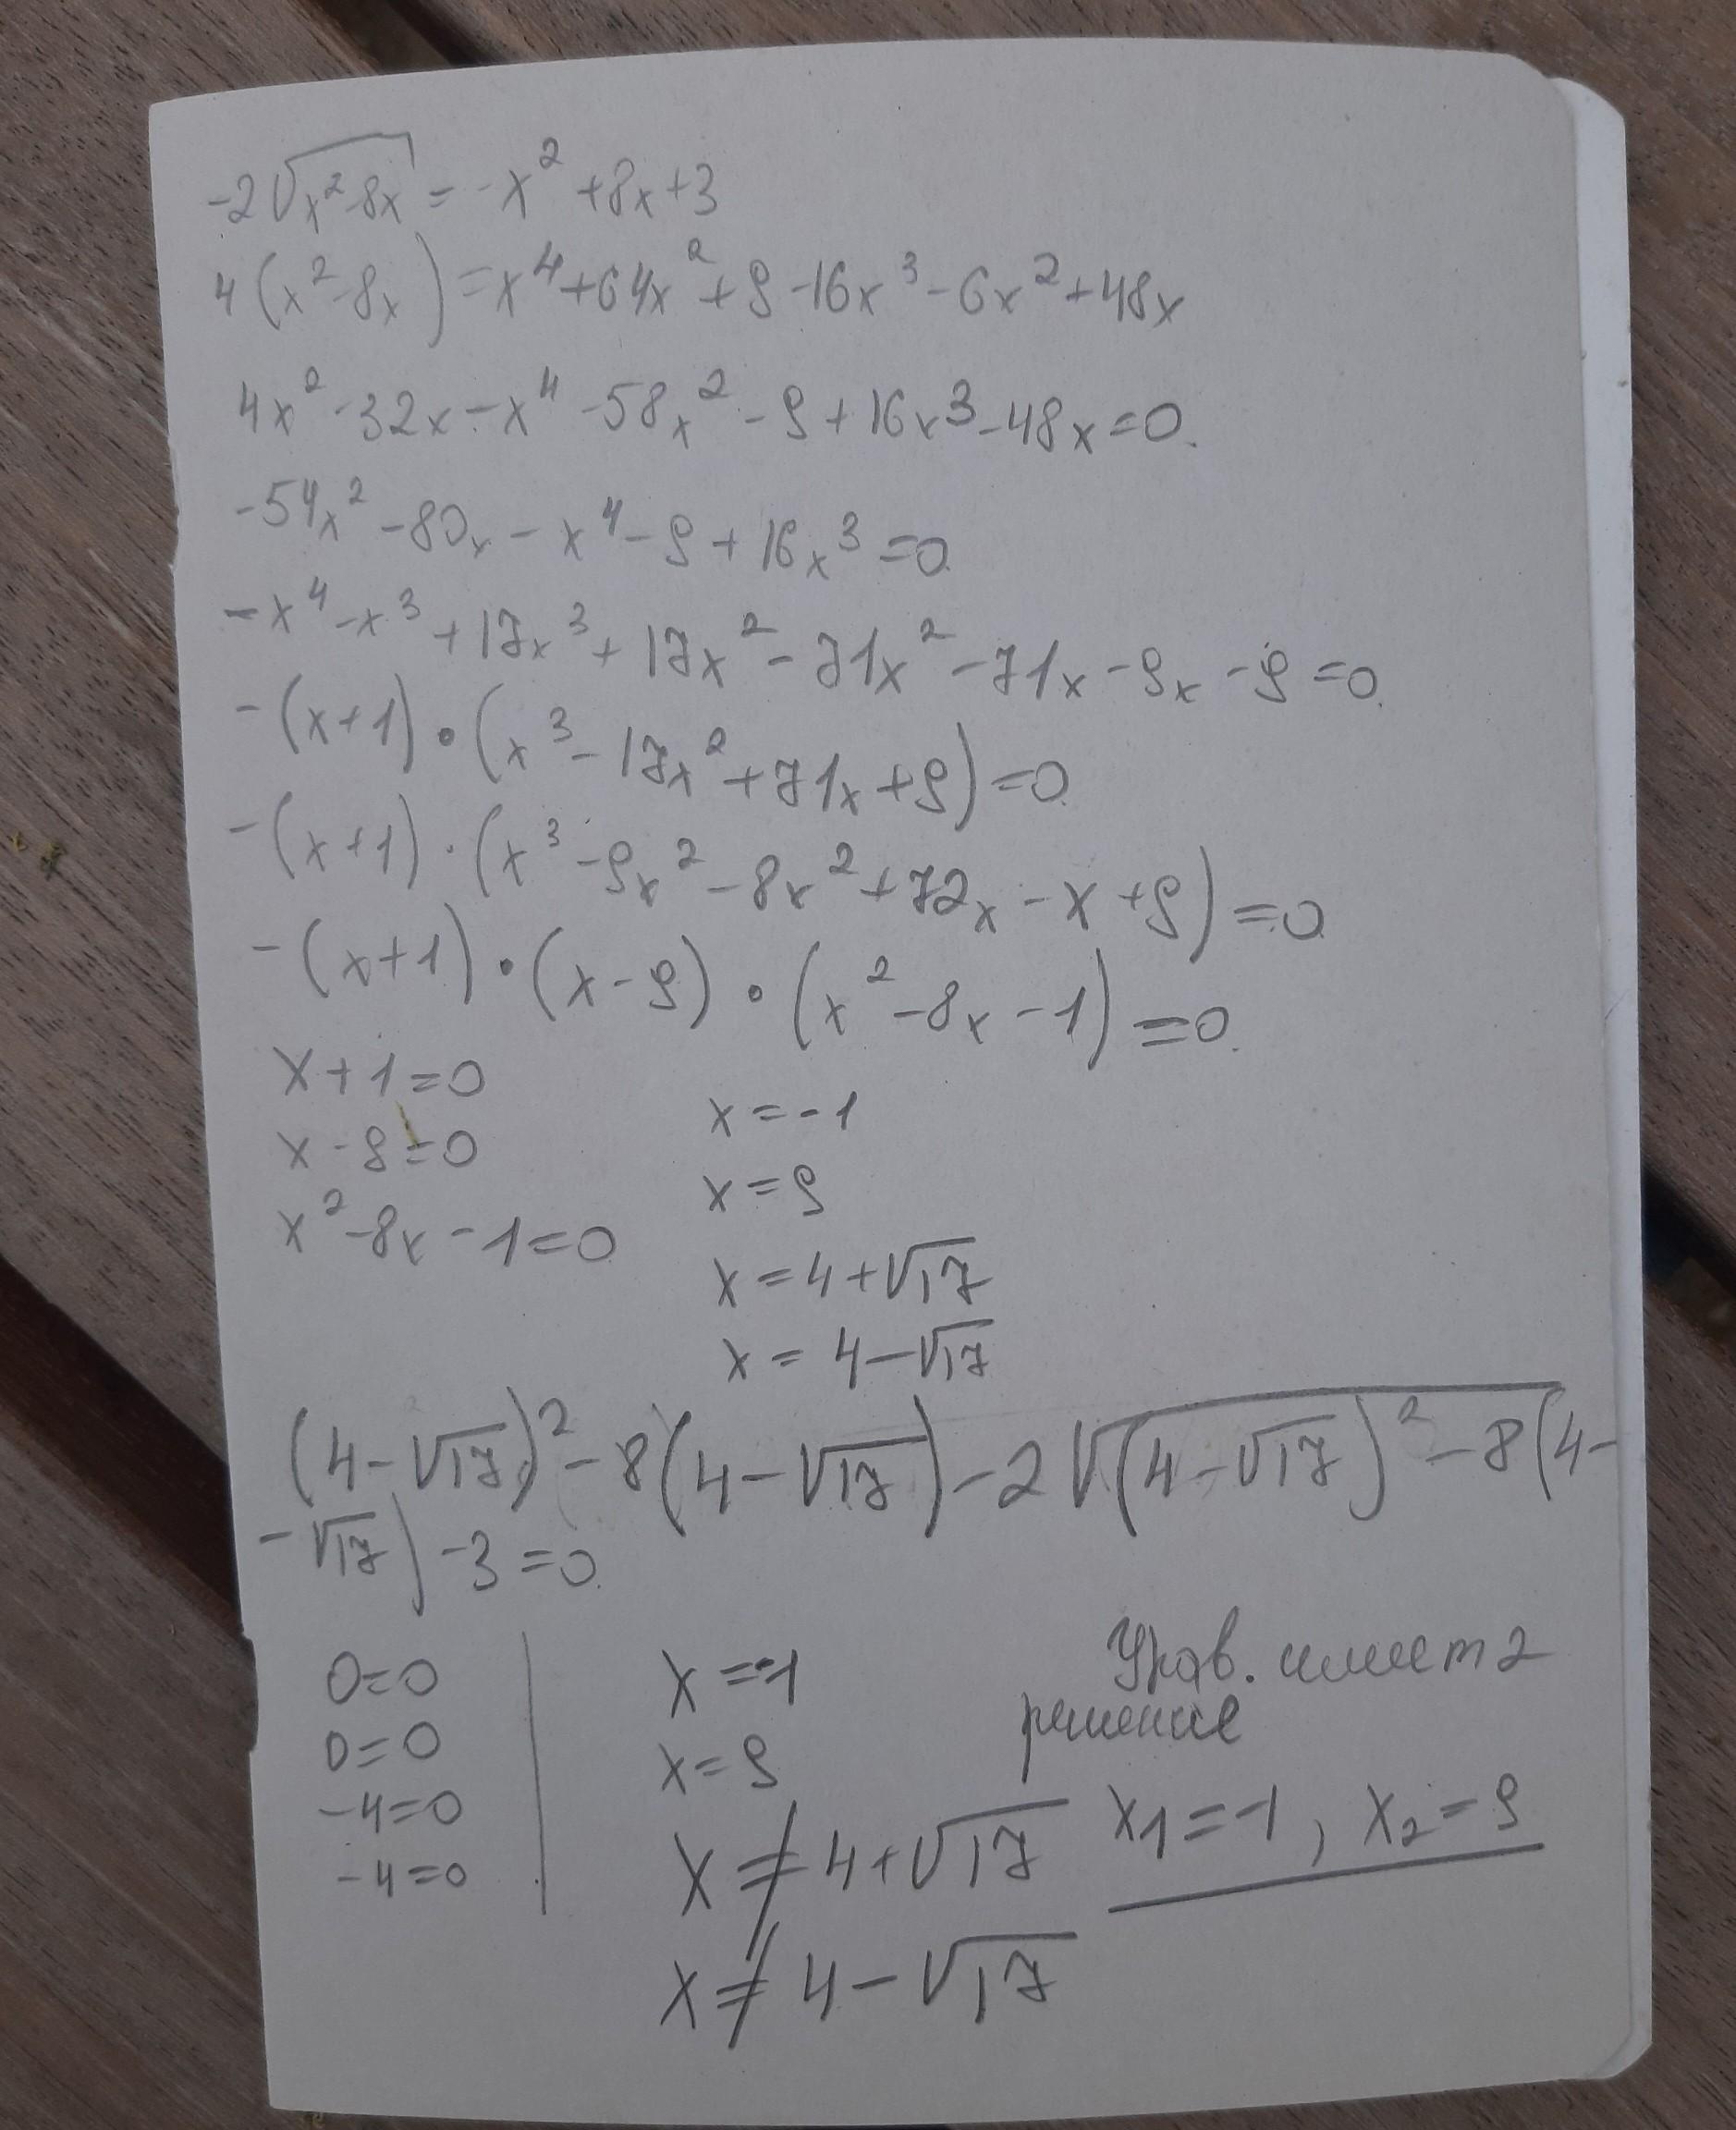 -2√(x²-8x) = -x²+8x+3
4(x²-8x)=x⁴+64x²+9-16x³-6x²+48x
4x²-32x-x⁴-58x²-9+16x³-48x=0.
-54x²-80x-x⁴-9+16x³=0
-x⁴-x³+17x³+17x²-71x²-71x-9x-9=0
-(x+1)·(x³-17x²+71x+9)=0
-(x+1)·(x³-9x²-8x²+72x-x+9)=0
-(x+1)·(x-9)·(x²-8x-1)=0.
x+1=0
x-9=0
x²-8x-1=0
x=-1
x=9
x=4+√17
x=4-√17
(4-√17)²-8(4-√17)-2√((4-√17)²-8(4-
-√17)-3=0
0=0
0=0
-4=0
-4=0
x=-1
x=9
x≠4+√17
x≠4-√17
Урав. имеет 2
решение
x₁=-1, x₂=9